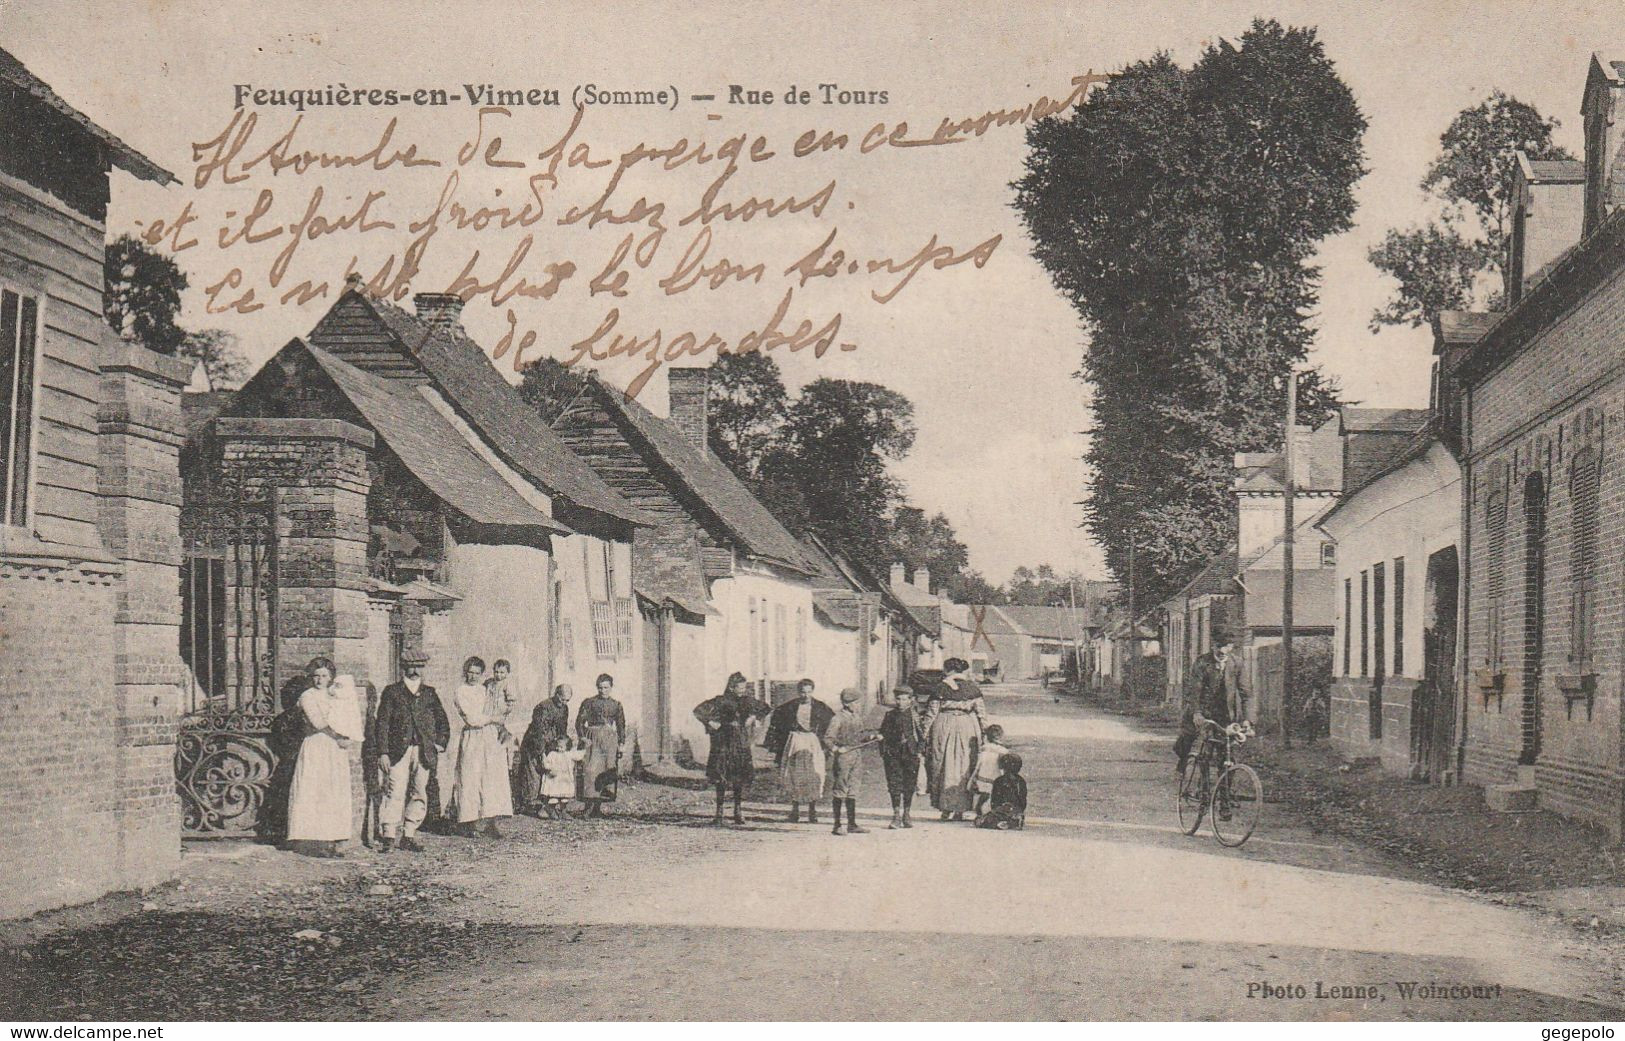 Feuquières-en-Vimeu (Somme) — Rue de Tours
Il tombe de la neige en ce moment
et il fait froid chez nous.
Ce n'est plus le bon temps
de Luzarches.
X
Photo Lenne, Woincourt
https://www.delcampe.net
gegepolo